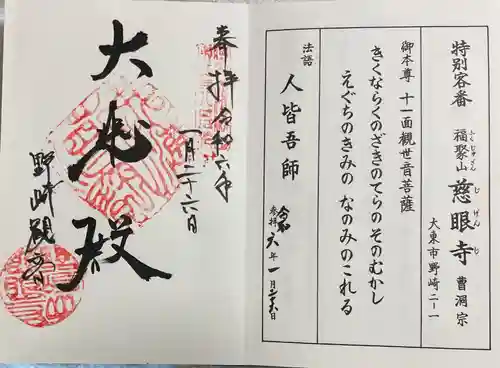 特別客番 福聚山 慈眼寺 曹洞宗
ふくじゅさん じげんじ
大東市野崎二ー一
御本尊 十一面観世音菩薩
きくならくのざきのてらのそのむかし
えぐちのきみの なのみのこれる
法語 人皆吾師
参拝 令和 六年 一月二十六日
奉拝 令和六年
一月二十六日
大悲殿
野崎観音